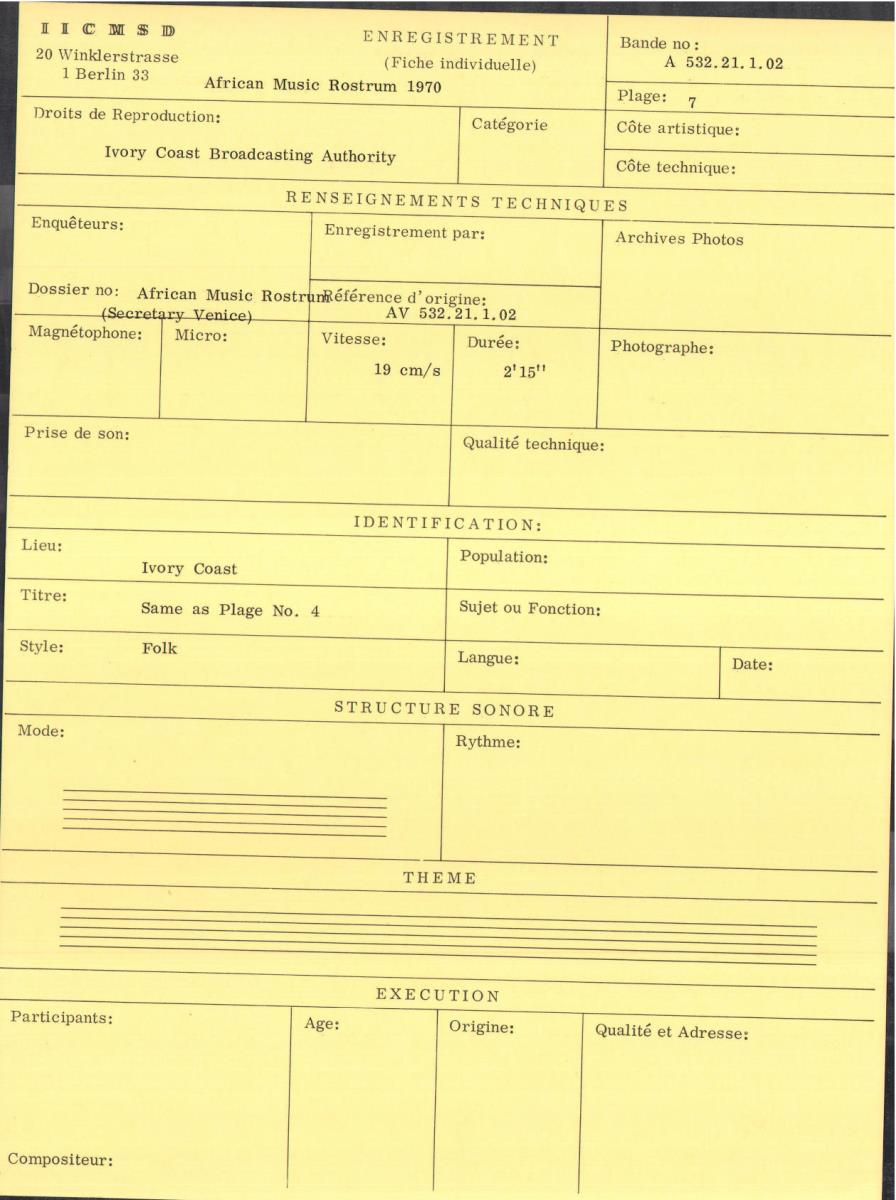 I I C M S D
20 Winklerstrasse
1 Berlin 33
ENREGISTREMENT
(Fiche individuelle)
African Music Rostrum 1970
Bande no:
A 532.21.1.02
Plage: 7
Droits de Reproduction:
Ivory Coast Broadcasting Authority
Catégorie
Côte artistique:
Côte technique:
RENSEIGNEMENTS TECHNIQUES
Enquêteurs:
Enregistrement par:
Archives Photos
Dossier no: African Music Rostrum
(Secretary Venice)
Référence d'origine:
AV 532.21.1.02
Magnétophone:
Micro:
Vitesse:
19 cm/s
Durée:
2'15''
Photographe:
Prise de son:
Qualité technique:
IDENTIFICATION:
Lieu:
Ivory Coast
Population:
Titre:
Same as Plage No. 4
Sujet ou Fonction:
Style: Folk
Langue:
Date:
STRUCTURE SONORE
Mode:
Rythme:
THEME
EXECUTION
Participants:
Age:
Origine:
Qualité et Adresse:
Compositeur: